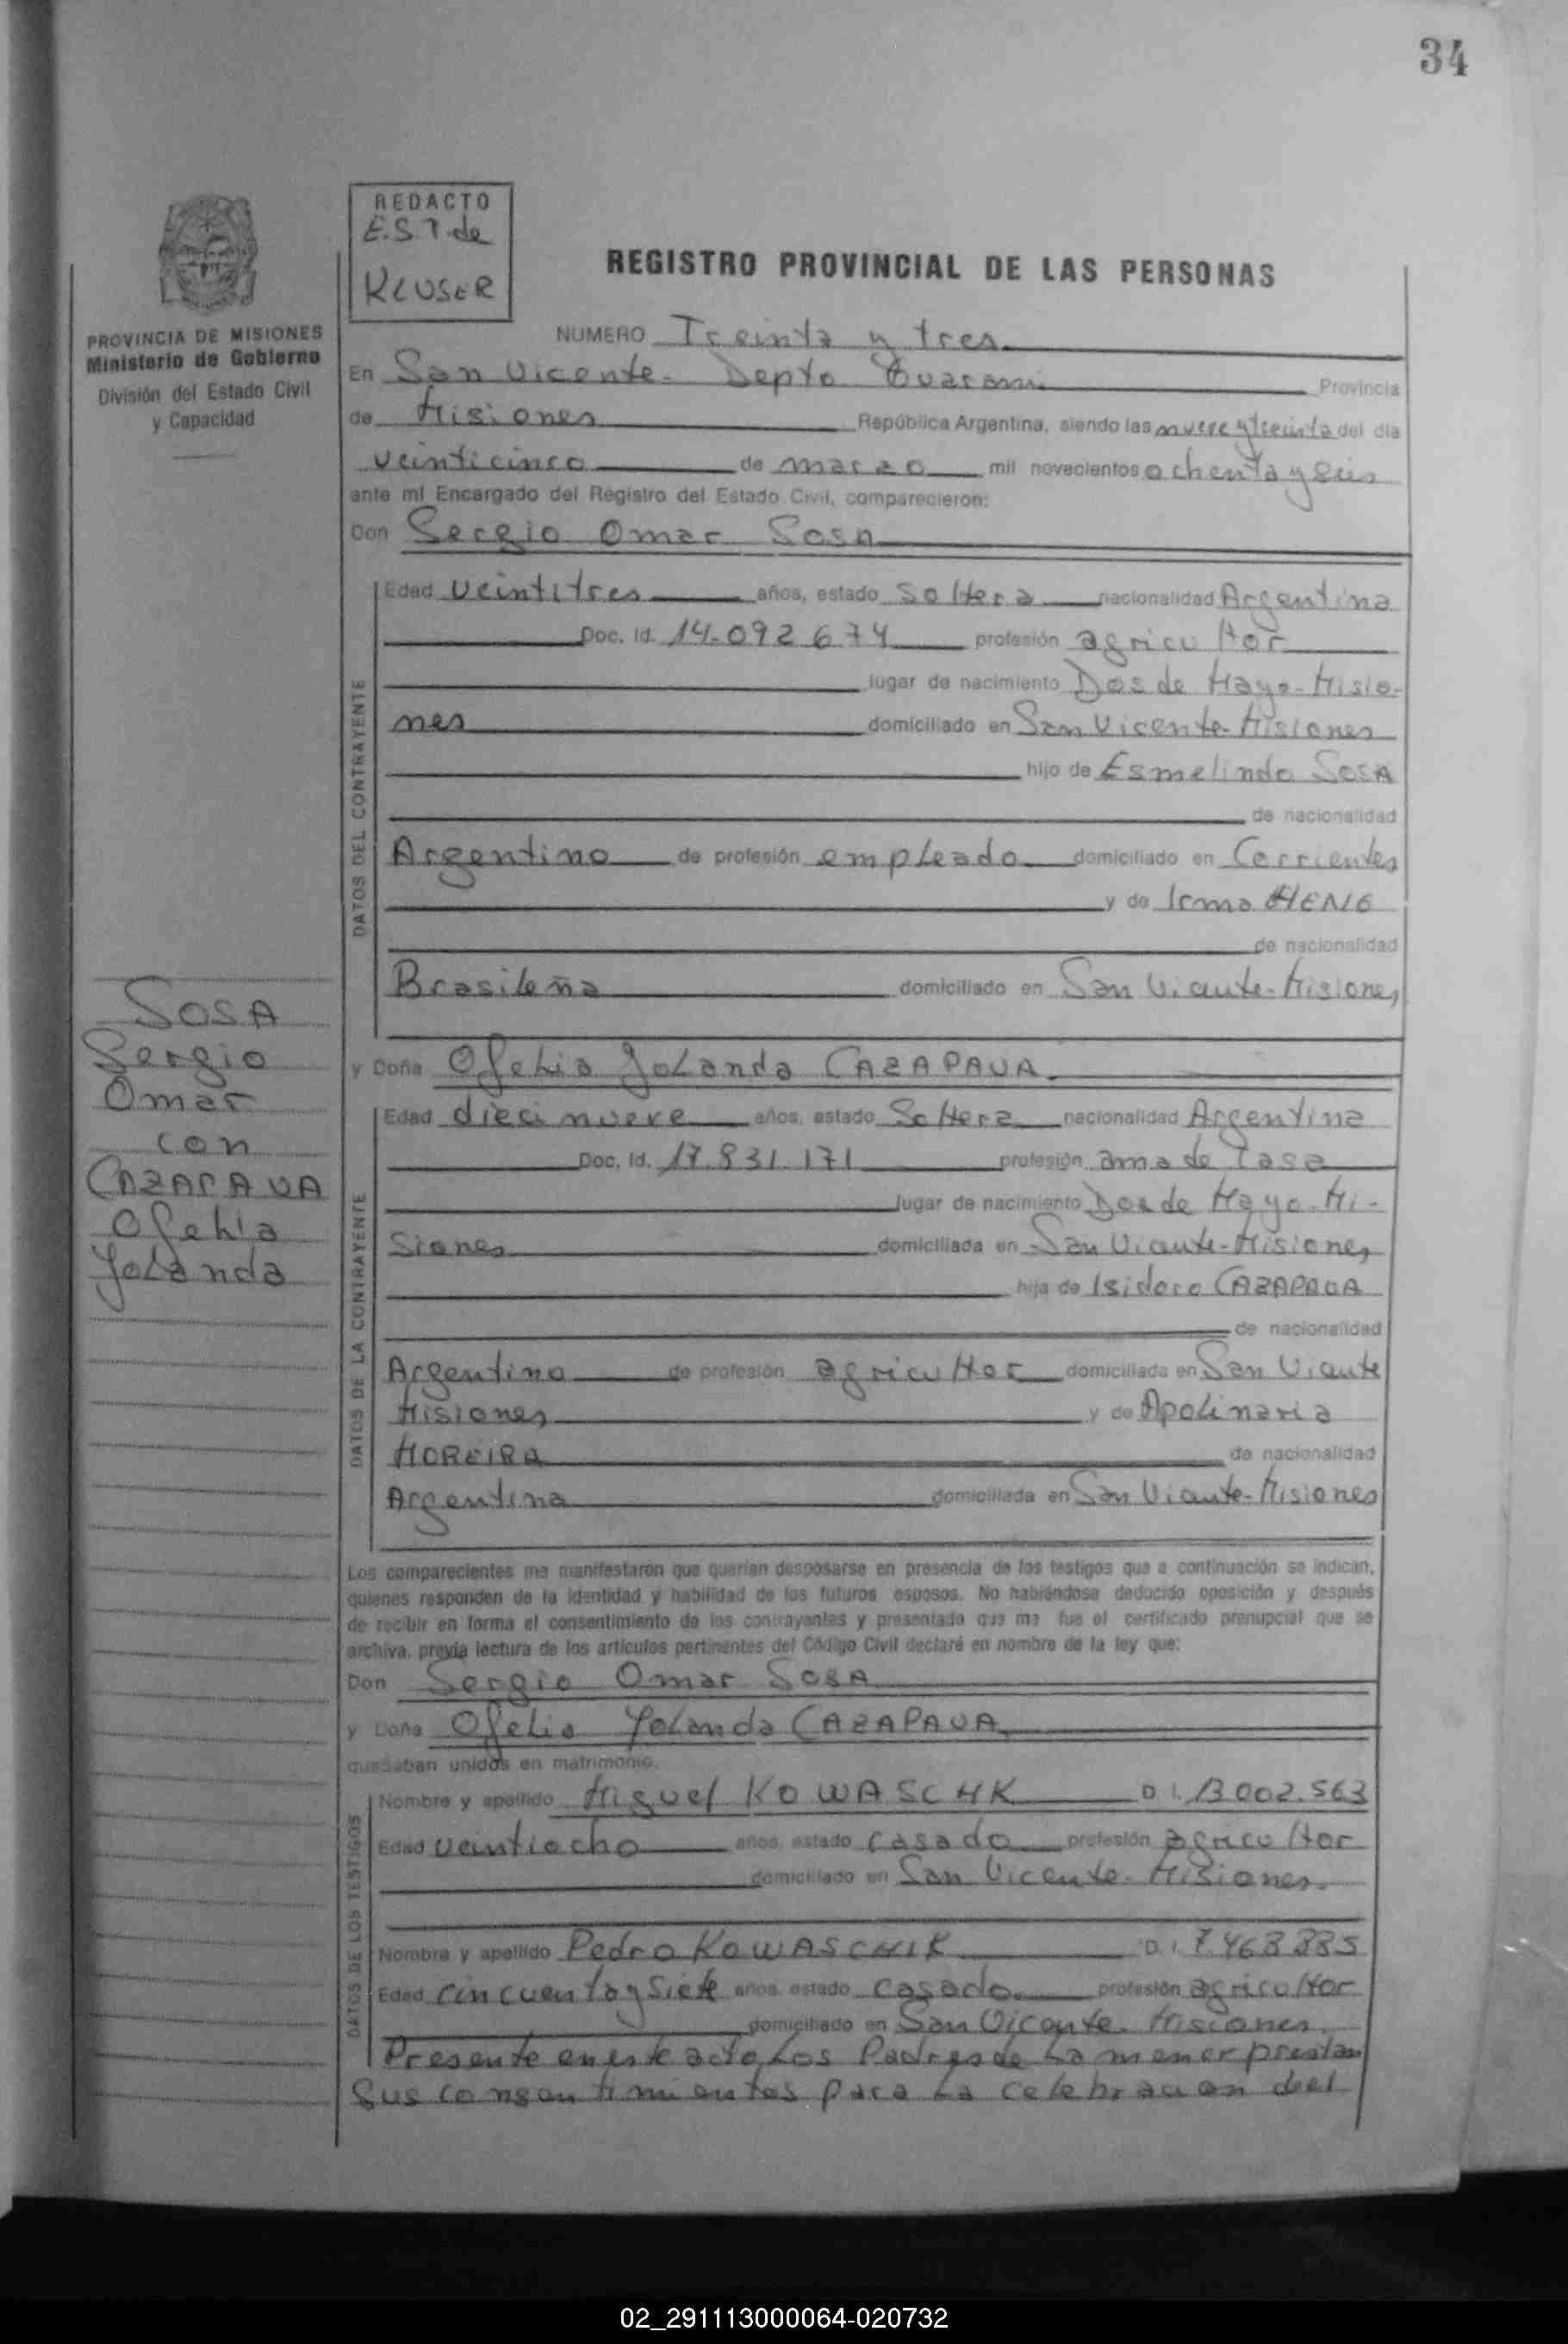 34
REDACTO
E.S.T. de
KLUSER
REGISTRO PROVINCIAL DE LAS PERSONAS
PROVINCIA DE MISIONES
Ministerio de Gobierno
División del Estado Civil
y Capacidad
NUMERO Treinta y tres
En San Vicente - Depto Guarani Provincia
de Misiones República Argentina, siendo las nueve y treinta del día
veinticinco de marzo mil novecientos ochenta y seis
ante mí Encargado del Registro del Estado Civil, comparecieron:
Don Sergio Omar Sosa
DATOS DEL CONTRAYENTE
Edad veintitres años, estado soltera nacionalidad Argentina
Doc. Id. 14.092.674 profesión agricultor
lugar de nacimiento Dos de Mayo - Misio-
nes domiciliado en San Vicente - Misiones
hijo de Esmelindo SOSA
de nacionalidad
Argentino de profesión empleado domiciliado en Corrientes
y de Irma HENE
de nacionalidad
Brasileña domiciliado en San Vicente - Misiones
SOSA
Sergio
Omar
con
CAZAPAVA
Ofelia
Yolanda
y Doña Ofelia Yolanda CAZAPAVA
DATOS DE LA CONTRAYENTE
Edad diecinueve años, estado Soltera nacionalidad Argentina
Doc. Id. 17.831.171 profesión ama de casa
lugar de nacimiento Dos de Mayo - Mi-
siones domiciliada en San Vicente - Misiones
hija de Isidoro CAZAPAVA
de nacionalidad
Argentino de profesión agricultor domiciliada en San Vicente
Misiones y de Apolinaria
MOREIRA de nacionalidad
Argentina domiciliada en San Vicente - Misiones
Los comparecientes me manifestaron que querían desposarse en presencia de los testigos que a continuación se indican,
quienes responden de la identidad y habilidad de los futuros esposos. No habiéndose deducido oposición y después
de recibir en forma el consentimiento de los contrayentes y presentado que me fue el certificado prenupcial que se
archiva, previa lectura de los artículos pertinentes del Código Civil declaré en nombre de la ley que:
Don Sergio Omar SOSA
y Doña Ofelia Yolanda CAZAPAVA
quedaban unidos en matrimonio.
DATOS DE LOS TESTIGOS
Nombre y apellido Miguel KOWASCHK D.I. 13.002.563
Edad veintiocho años, estado casado profesión agricultor
domiciliado en San Vicente - Misiones.
Nombre y apellido Pedro KOWASCHIK D.I. 7.468.885
Edad cincuenta y siete años, estado casado profesión agricultor
domiciliado en San Vicente - Misiones.
Presente en este acto los Padres de la menor prestan
sus consentimientos para la celebracion del
02_291113000064-020732